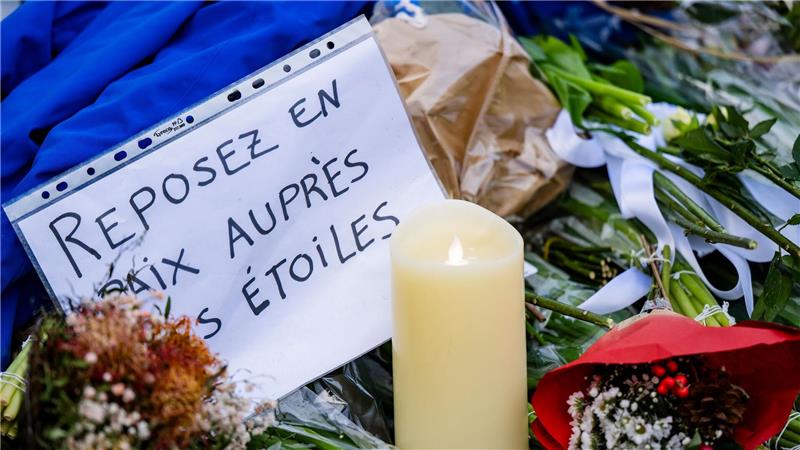 REPOSEZ EN
PAIX AUPRÈS
S ÉTOILES